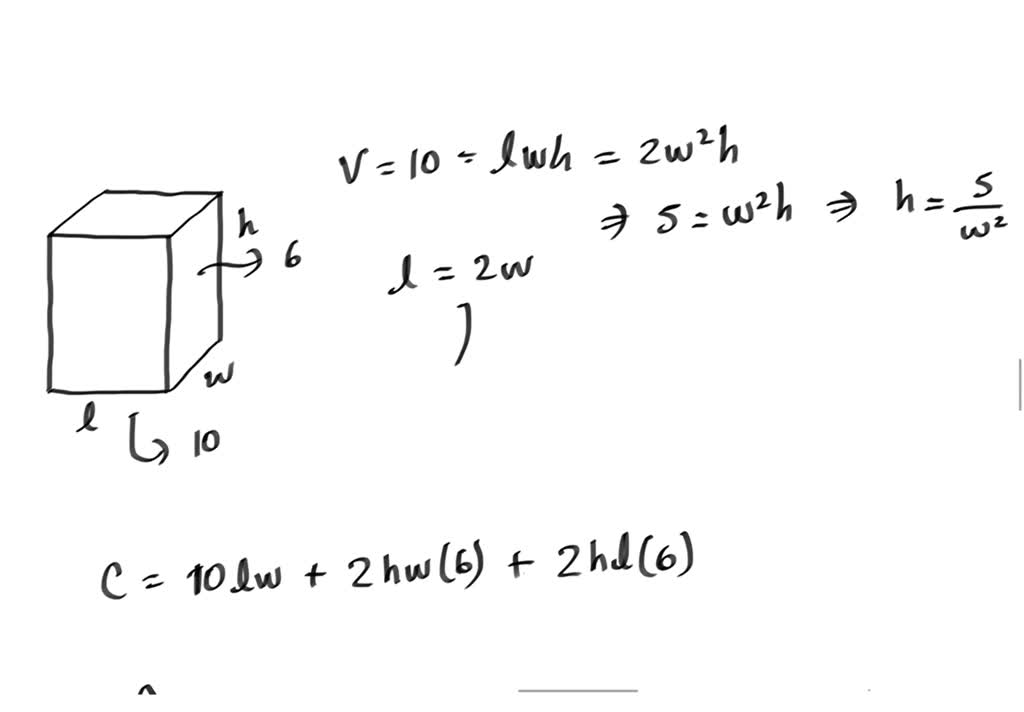 V = 10 = lwh = 2w²h
⇒ 5 = w²h ⇒ h = 5/w²
h
6
l = 2w
w
l
10
C = 10lw + 2hw(6) + 2hl(6)